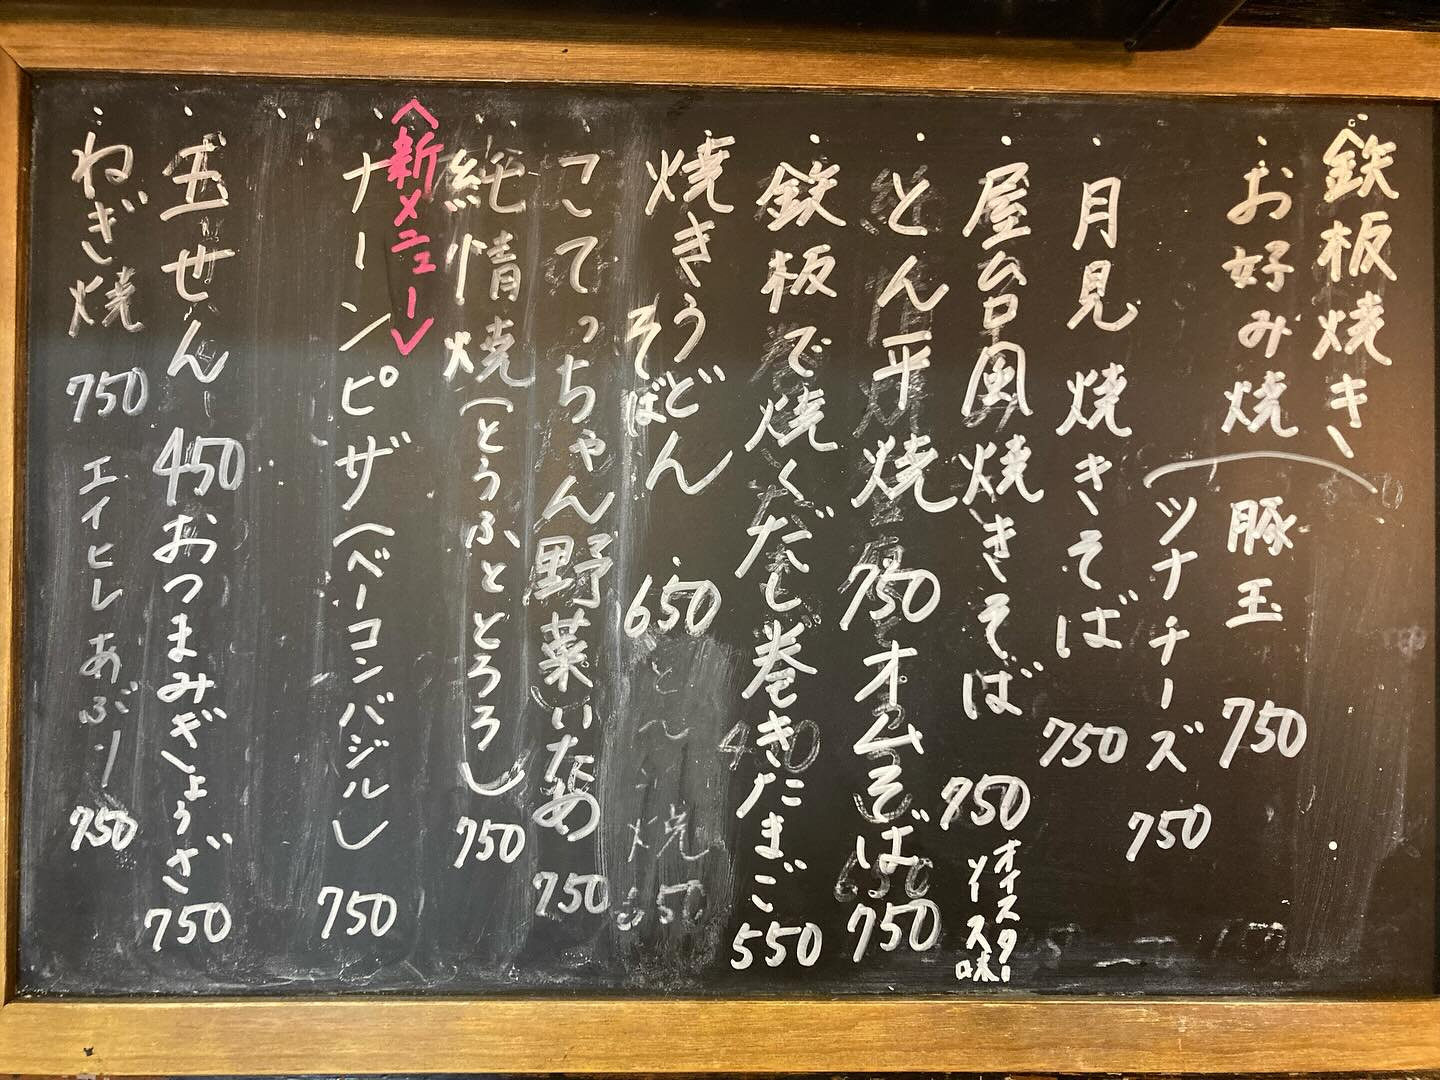 鉄板焼き
お好み焼 豚玉 750
ツナチーズ 750
月見焼きそば 750
屋台風焼きそば 750 オイスターソース味
とん平焼 750 オムそば 750
鉄板で焼くだし巻きたまご 550
焼きうどん そば 650
こてっちゃん野菜いため 750
純情焼(とうふととろろ) 750
〈新メニュー〉
ナーンピザ(ベーコンバジル) 750
玉せん 450 おつまみぎょうざ 750
ねぎ焼 750 エイヒレあぶり 750